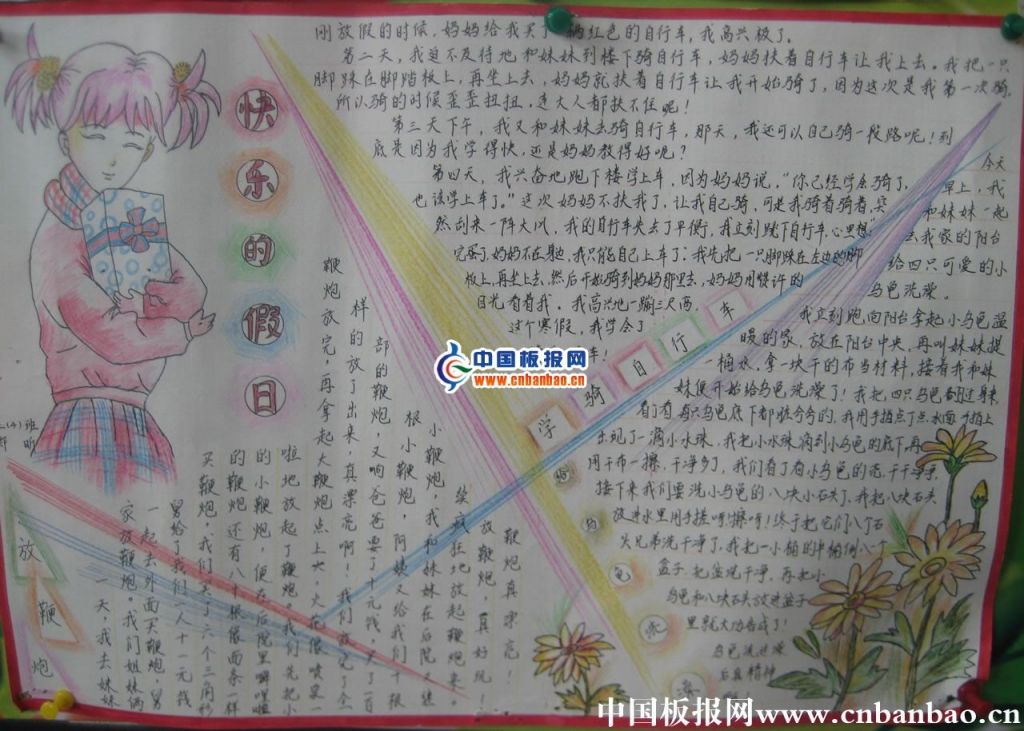 快乐的假日
刚放假的时候，妈妈给我买了一辆红色的自行车，我高兴极了。
第二天，我迫不及待地和妹妹到楼下骑自行车，妈妈扶着自行车让我上去。我把一只
脚踩在脚踏板上，再坐上去，妈妈就扶着自行车让我开始骑了，因为这次是我第一次骑，
所以骑的时候歪歪扭扭，连大人都扶不住呢！
第三天下午，我又和妹妹去骑自行车，那天，我还可以自己骑一段路呢！到
底是因为我学得快，还是妈妈教得好呢？
第四天，我兴奋地跑下楼学上车，因为妈妈说，“你已经学会骑了，
也该学上车了。”这次妈妈不扶我了，让我自己骑，可是我骑着骑着，突
然刮来一阵大风，我的自行车失去了平衡，我立刻跳下自行车，心里想：
完蛋了，妈妈不在身边，我只能自己上车了：我先把一只脚踩在左边的脚
板上，再坐上去，然后开始骑到妈妈那里去，妈妈用赞许的
目光看着我。我高兴地一蹦三尺高。
这个寒假，我学会了
车！
学骑自行车
今天
早上，我
和妹妹一起
去我家的阳台
给四只可爱的小
乌龟洗澡。
我立刻跑向阳台拿起小乌龟温
暖的家，放在阳台中央，再叫妹妹提
一桶水，拿一块干的布当材料，接着我和妹
妹便开始给乌龟洗澡了！我把四只乌龟都翻过身来
看了看，每只乌龟底下都脏兮兮的，我用手指点了点水面，手指上
出现了一滴小水珠，我把小水珠滴到小乌龟的底下，再
用干布一擦，干净多了，我们看了看小乌龟的壳，干干净净，
接下来我们要洗小乌龟的八块小石头了，我把八块石头
放进水里用手搓呀！擦呀！终于把它们八个石
头兄弟洗干净了，我把一小桶的水桶倒入了
盆子，把盆洗干净，再把小
乌龟和八块石头放进盆子
里就大功告成了！
乌龟洗过澡
后真精神
给乌龟
放鞭炮
一天，我去妹妹
家放鞭炮。我们姐妹俩
一起去外面买鞭炮，舅
舅给了我们一人十一元钱
买鞭炮，我们买了六个三角形
的鞭炮，还有八个很像面条一样
的小鞭炮，便在后院里噼哩啪
啦地放起了鞭炮。我们先把小
鞭炮放完，再拿起大鞭炮点上火，火花像喷泉一
样的放了出来，真漂亮啊！我们放完了全
部的鞭炮，又向爸爸要了十元钱，买了一百
根小鞭炮，阿姨又给我们一千根
小鞭炮，我和妹妹在后院又继
续疯狂地放起鞭炮来。
放鞭炮，真好玩！
鞭炮真漂亮！
中国板报网
www.cnbanbao.com
中国板报网www.cnbanbao.cn